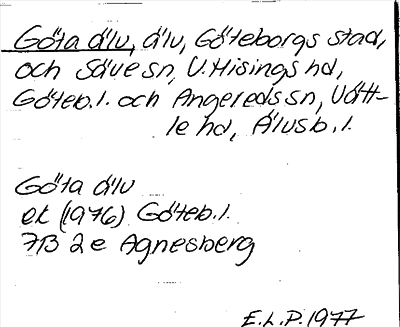 Göta älv, älv, Göteborgs stad,
och Säve sn, V. Hisings hd,
Göteb. l. och Angereds sn, Vätt-
le hd, Älvsb. l.
Göta älv
ek (1976) Göteb. l.
7B 2e Agnesberg
E.L.P. 1977